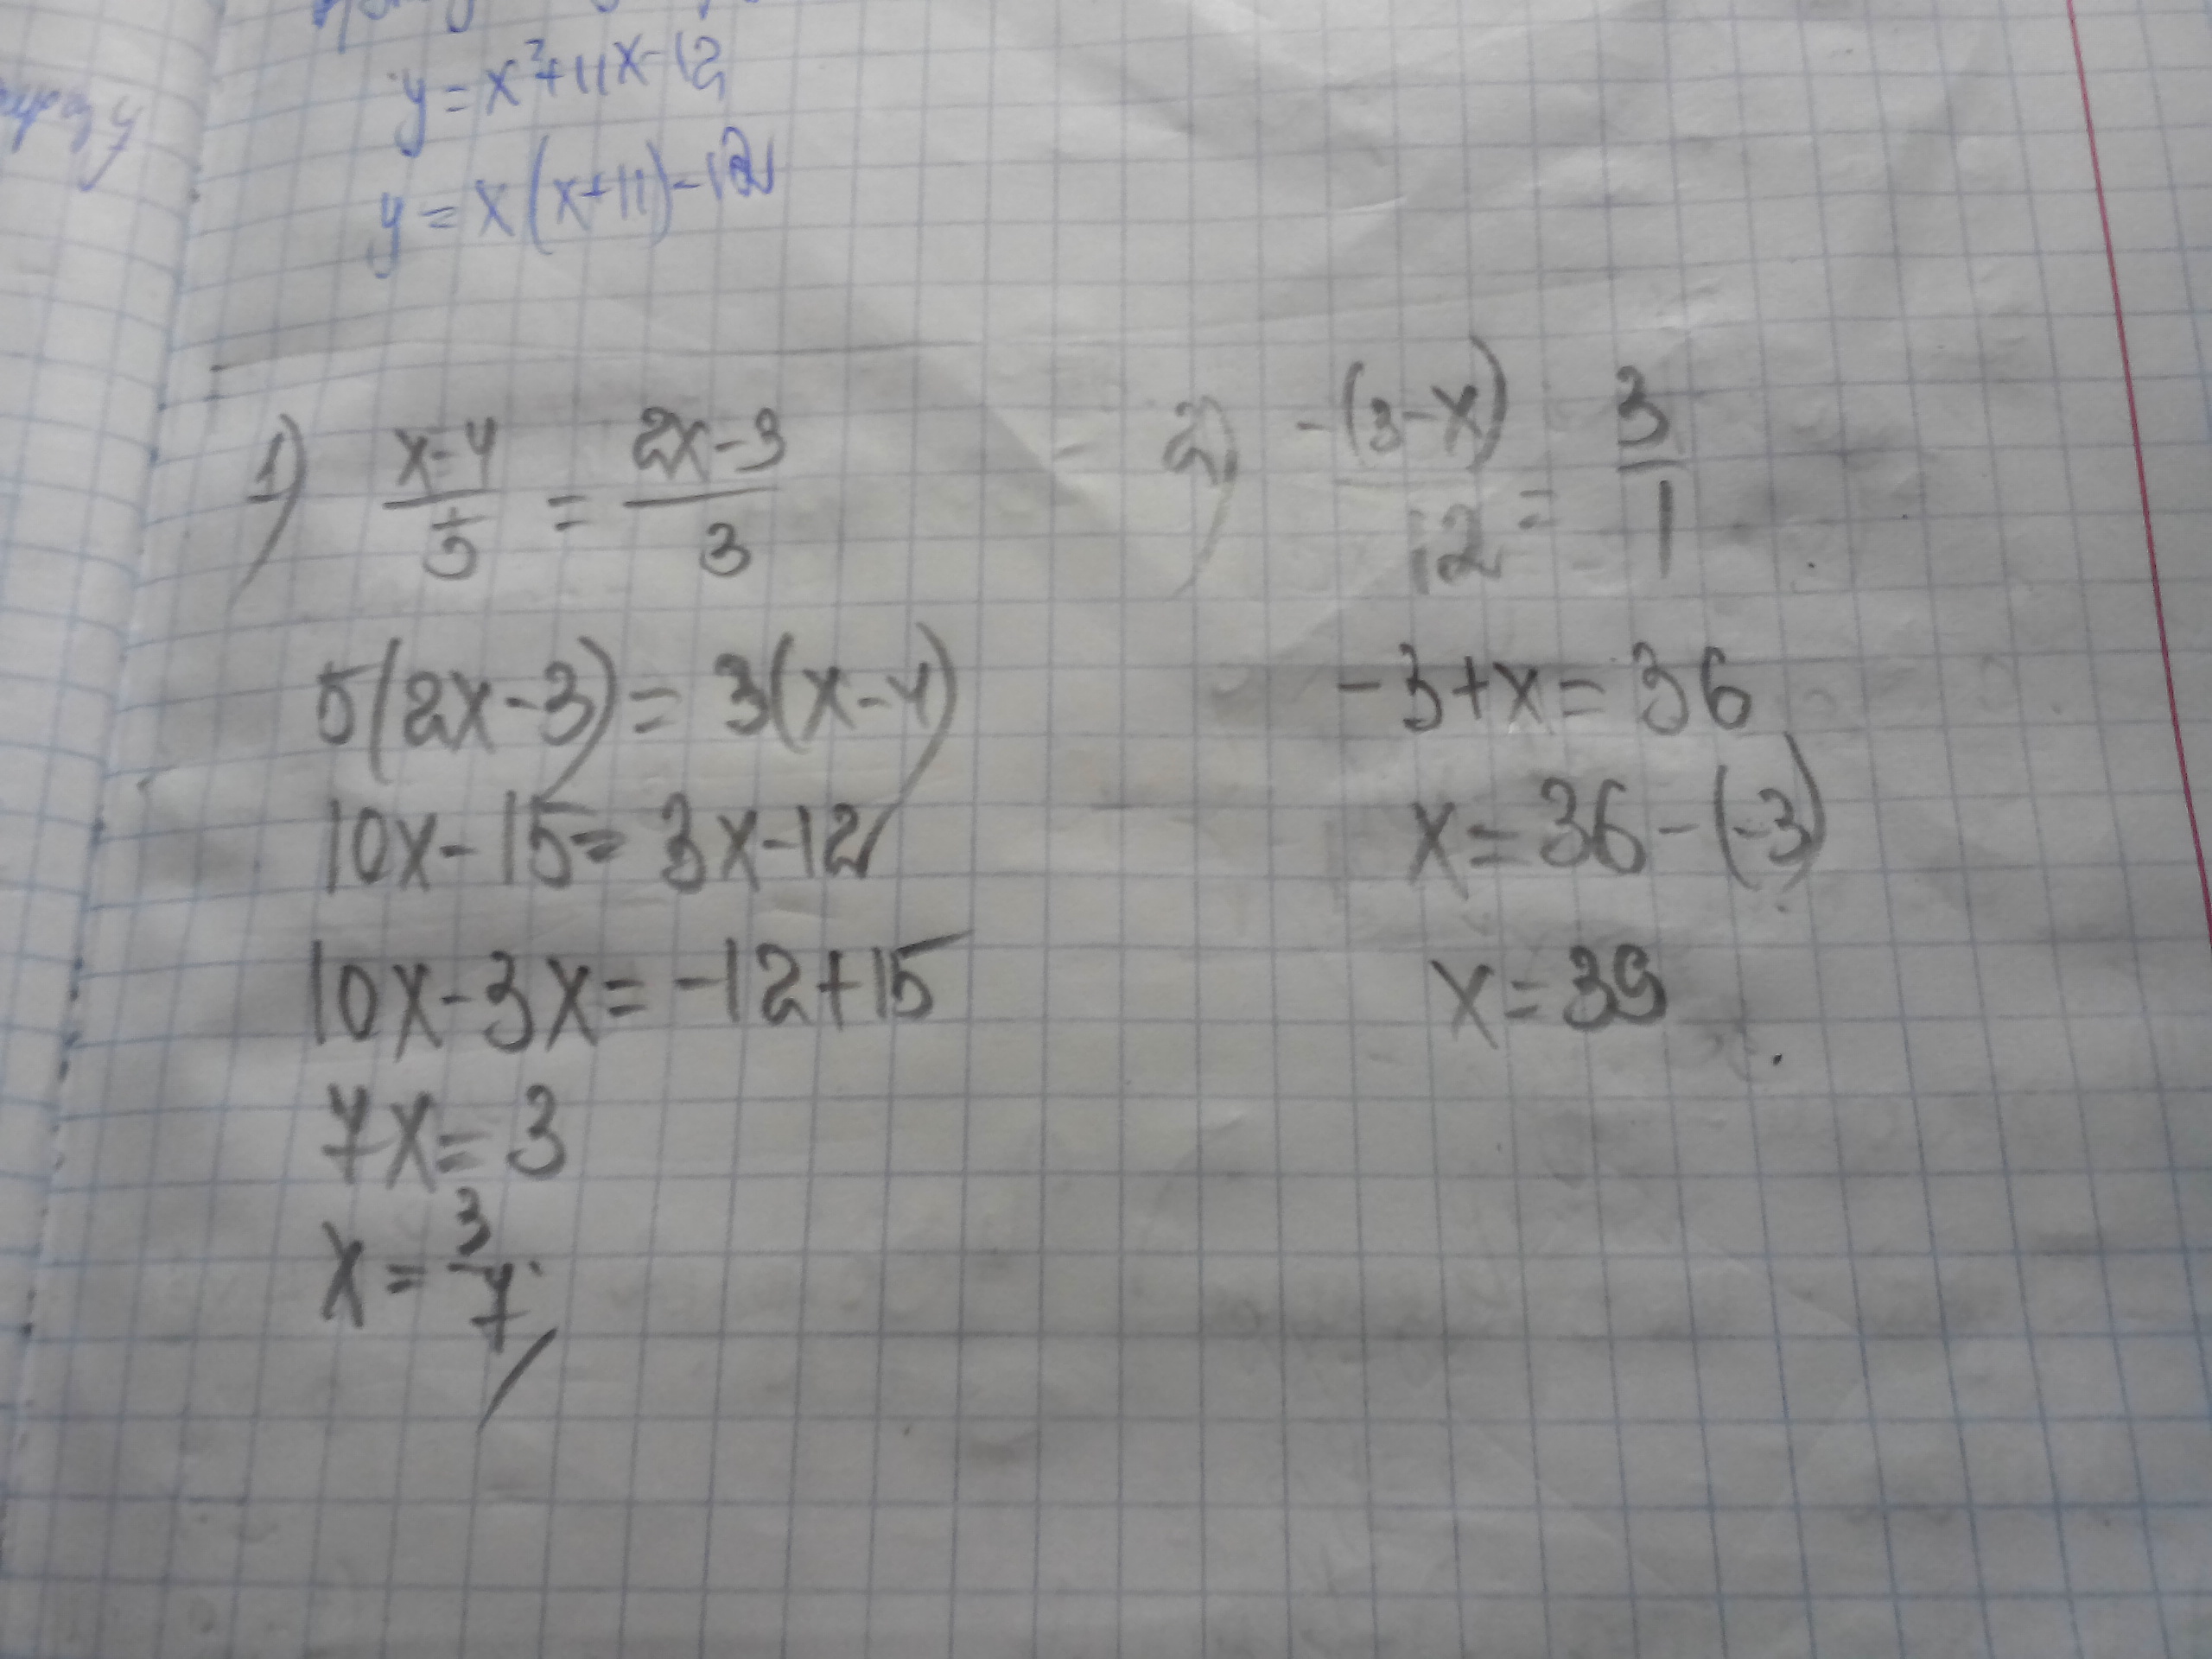 y = x²+11x-12
y = x(x+11)-12
1) x-4/5 = 2x-3/3
5(2x-3) = 3(x-4)
10x-15 = 3x-12
10x-3x = -12+15
7x = 3
x = 3/7
2) -(3-x)/12 = 3/1
-3+x = 36
x = 36-(-3)
x = 39